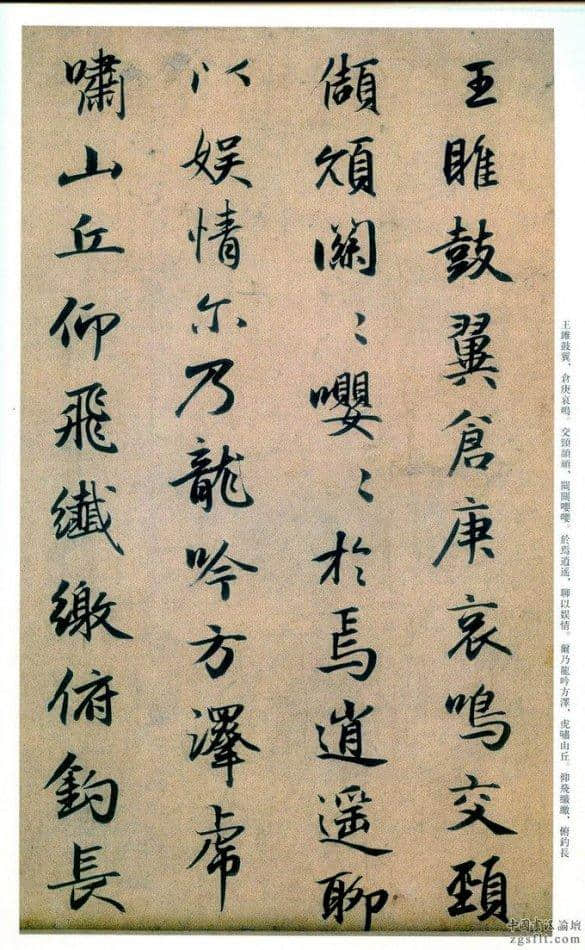 王雎鼓翼、倉庚哀鳴。交頸頡頏、關關嚶嚶。於焉逍遥、聊以娱情。爾乃龍吟方澤、虎嘯山丘。仰飛纖繳、俯釣長
王雎鼓翼倉庚哀鳴交頸
頡頏關〻嚶〻於焉逍遥聊
以娱情尒乃龍吟方澤虎
嘯山丘仰飛纖繳俯釣長
中国书法論壇